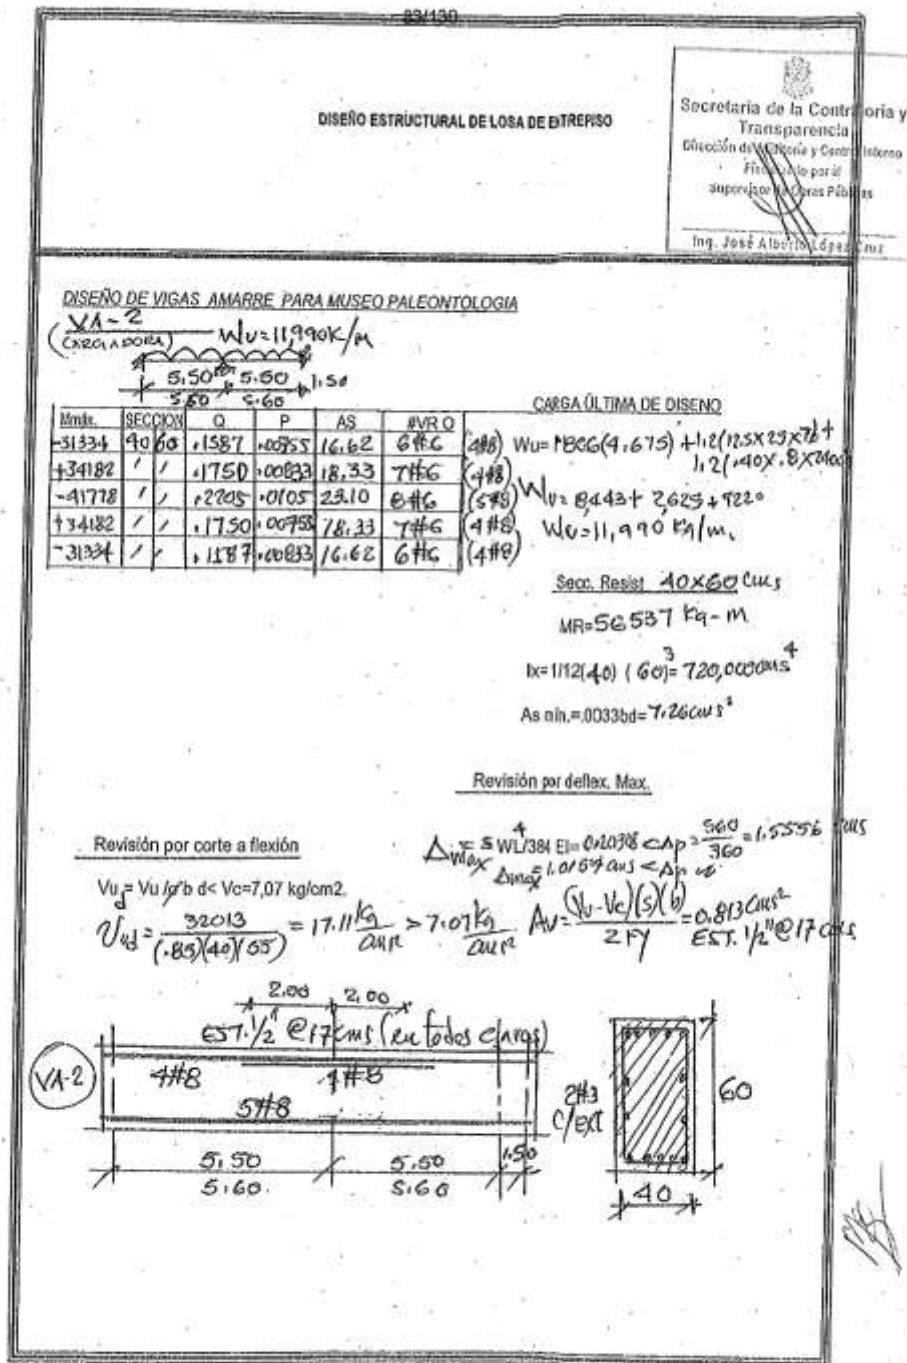 83/130
DISEÑO ESTRUCTURAL DE LOSA DE ENTREPISO
Secretaría de la Contraloria y
Transparencia
Dirección de Auditoría y Control Interno
Fiscalizado por el
Supervisor de Obras Públicas
Ing. José Alberto López Cruz
DISEÑO DE VIGAS AMARRE PARA MUSEO PALEONTOLOGIA
VA-2
(CARGADORA) Wu=11,990K/M
5.50 5.50 1.50
5.60 5.60
CARGA ÚLTIMA DE DISEÑO
Mmáx. SECCION Q P AS #VR O
-31334 40 60 .1587 .00755 16.62 6#6 (4#8)
+34182 " " .1750 .00833 18.33 7#6 (4#8)
-41778 " " .2205 .0105 23.10 8#6 (5#8)
+34182 " " .1750 .00755 18.33 7#6 (4#8)
-31334 " " .1587 .00833 16.62 6#6 (4#8)
Wu= 1806(4.675) +1.2(125X25X.7)+
1.2(.40X.8X2400
Wu= 8,443+ 2,625+922=
Wu=11,990 Kg/m.
Secc. Resist 40x60 cms
MR=56537 Kg-m
Ix=1/12(40) (60)³= 720,000cms⁴
As mín.=.0033bd= 7.26cms²
Revisión por deflex. Max.
Δmax= 5 WL⁴/384 EI= 0.20308 <Δp= 560/360 =1.5556 cms
Δmax=1.0154 cms <Δp
Revisión por corte a flexión
Vud= Vu/ø b d< Vc=7,07 kg/cm2.
Vud= 32013/(.85)(40)(55) = 17.11 kg/cm² > 7.07 kg/cm²
Av= (Vu-Vc)(s)(b)/2 Fy =0.813cms²
EST. 1/2"@17 cms
2.00 2.00
EST. 1/2" @17cms (en todos claros)
VA-2
4#8 4#8
5#8
2#3
C/EXT
60
40
5.50 5.50 1.50
5.60 5.60